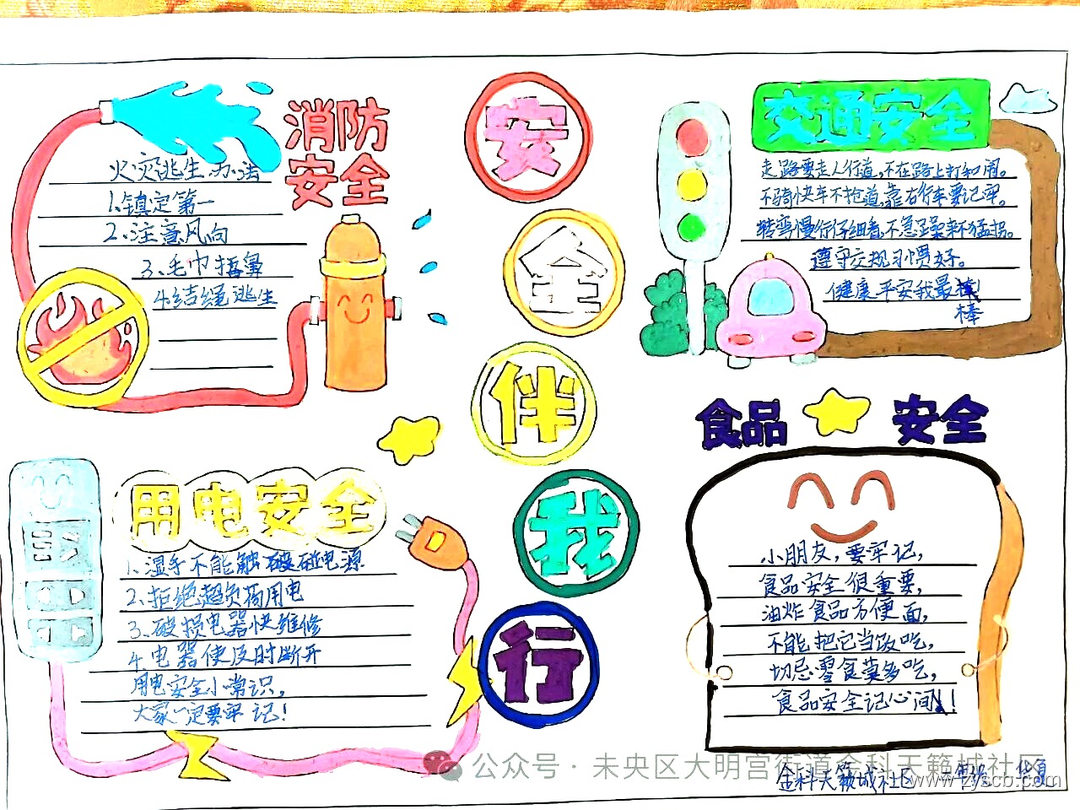 消防
安全
火灾逃生办法
1.镇定第一
2.注意风向
3.毛巾捂鼻
4.结绳逃生
安
全
伴
我
行
交通安全
走路要走人行道,不在路上打和闹。
不骑快车不抢道,靠右行车要记牢。
转弯慢行仔细看,不急躁来不猛拐。
遵守交规习惯好。
健康平安我最棒
棒
用电安全
1、湿手不能触碰电源
2、拒绝超负荷用电
3、破损电器快维修
4、电器使及时断开
用电安全小常识,
大家一定要牢记!
食品安全
小朋友,要牢记,
食品安全很重要,
油炸食品方便面,
不能把它当饭吃,
切忌零食莫多吃,
食品安全记心间!
公众号·未央区大明宫街道金科天籁城社区
金科天籁城社区
www.zyscb.com